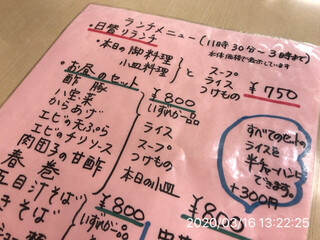 ランチメニュー (11時30分〜3時まで)
本体価格で表示しています
・日替りランチ
・本日の御料理
小皿料理
と
スープ
ライス
つけもの
¥750
・お昼のセット
¥800
酢豚
八宝菜
からあげ
エビの天ぷら
エビのチリソース
肉団子の甘酢
春巻
五目汁そば
いずれか一品
ライス
スープ
つけもの
本日の小皿
すべてのセットの
ライスを
半チャーハンに
できます。
+300円
¥800
いずれか一品
2020/03/16 13:22:25